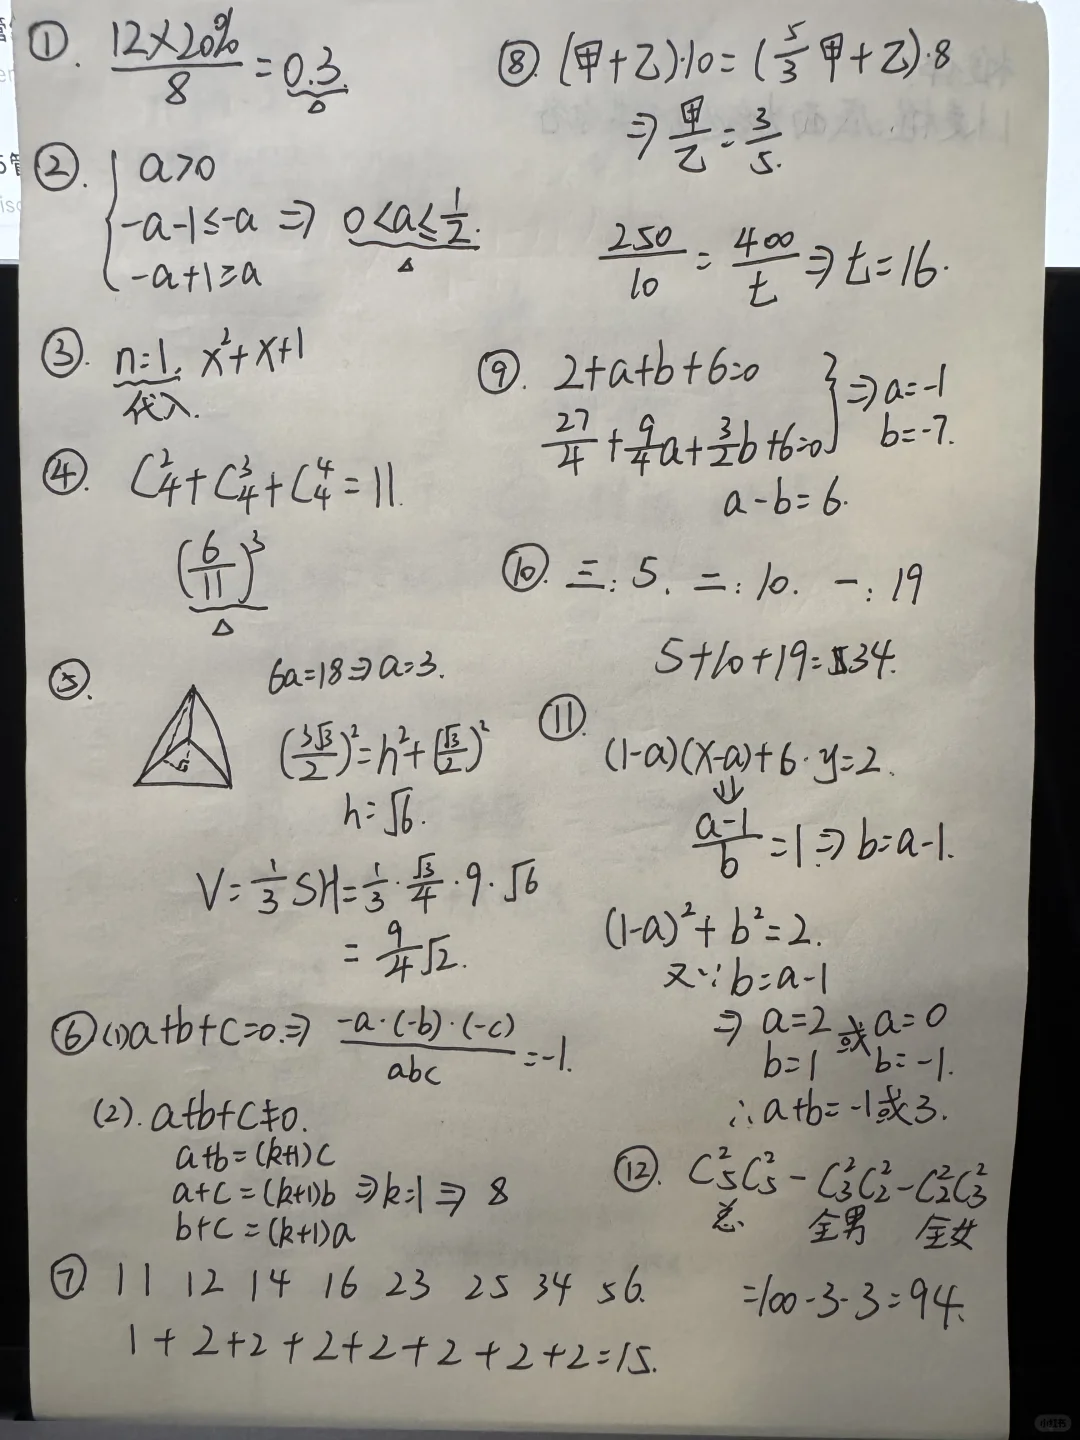 ①. 12×20%/8 = 0.3
②. { a>0
-a-1≤-a ⇒ 0<a≤1/2.
-a+1≥a
③. n=1, x²+x+1
代入.
④. C₄²+C₄³+C₄⁴=11.
(6/11)³
⑤. 6a=18⇒a=3.
(3√3/2)²=h²+(√3/2)²
h=√6.
V=1/3 SH=1/3·√3/4·9·√6
=9/4√2.
⑥(1)a+b+c=0.⇒ -a·(-b)·(-c)/abc =-1.
(2). a+b+c≠0.
a+b=(k+1)c
a+c=(k+1)b ⇒k=1⇒ 8
b+c=(k+1)a
⑦. 11 12 14 16 23 25 34 56.
1+2+2+2+2+2+2+2=15.
⑧. (甲+乙)·10=(5/3甲+乙)·8
⇒甲/乙=3/5.
250/10=400/t⇒t=16.
⑨. 2+a+b+6=0 } ⇒a=-1
27/4+9/4a+3/2b+6=0 b=-7.
a-b=6.
⑩. 三:5. 二:10. 一:19
5+10+19=34.
⑪
(1-a)(x-a)+b·y=2.
⇓
a-1/b=1⇒b=a-1.
(1-a)²+b²=2.
又∵b=a-1
⇒a=2或a=0
b=1 b=-1.
∴a+b=-1或3.
⑫. C₅²C₅²-C₃²C₂²-C₂²C₃²
总 全男 全女
=100-3-3=94.
小红书